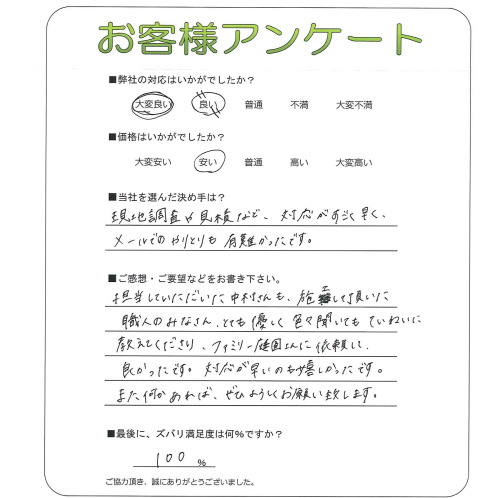 お客様アンケート
■弊社の対応はいかがでしたか？
大変良い 良い 普通 不満 大変不満
■価格はいかがでしたか？
大変安い 安い 普通 高い 大変高い
■当社を選んだ決め手は？
現地調査や見積など、対応がすごく早く、
メールでのやりとりも有難かったです。
■ご感想・ご要望などをお書き下さい。
担当していただいた中村さんも、施工して頂いた
職人のみなさん、とても優しく色々聞いてもていねいに
教えてくださり、ファミリー庭園さんに依頼して、
良かったです。対応が早いのも嬉しかったです。
また何かあれば、ぜひよろしくお願い致します。
■最後に、ズバリ満足度は何%ですか？
100 %
ご協力頂き、誠にありがとうございました。